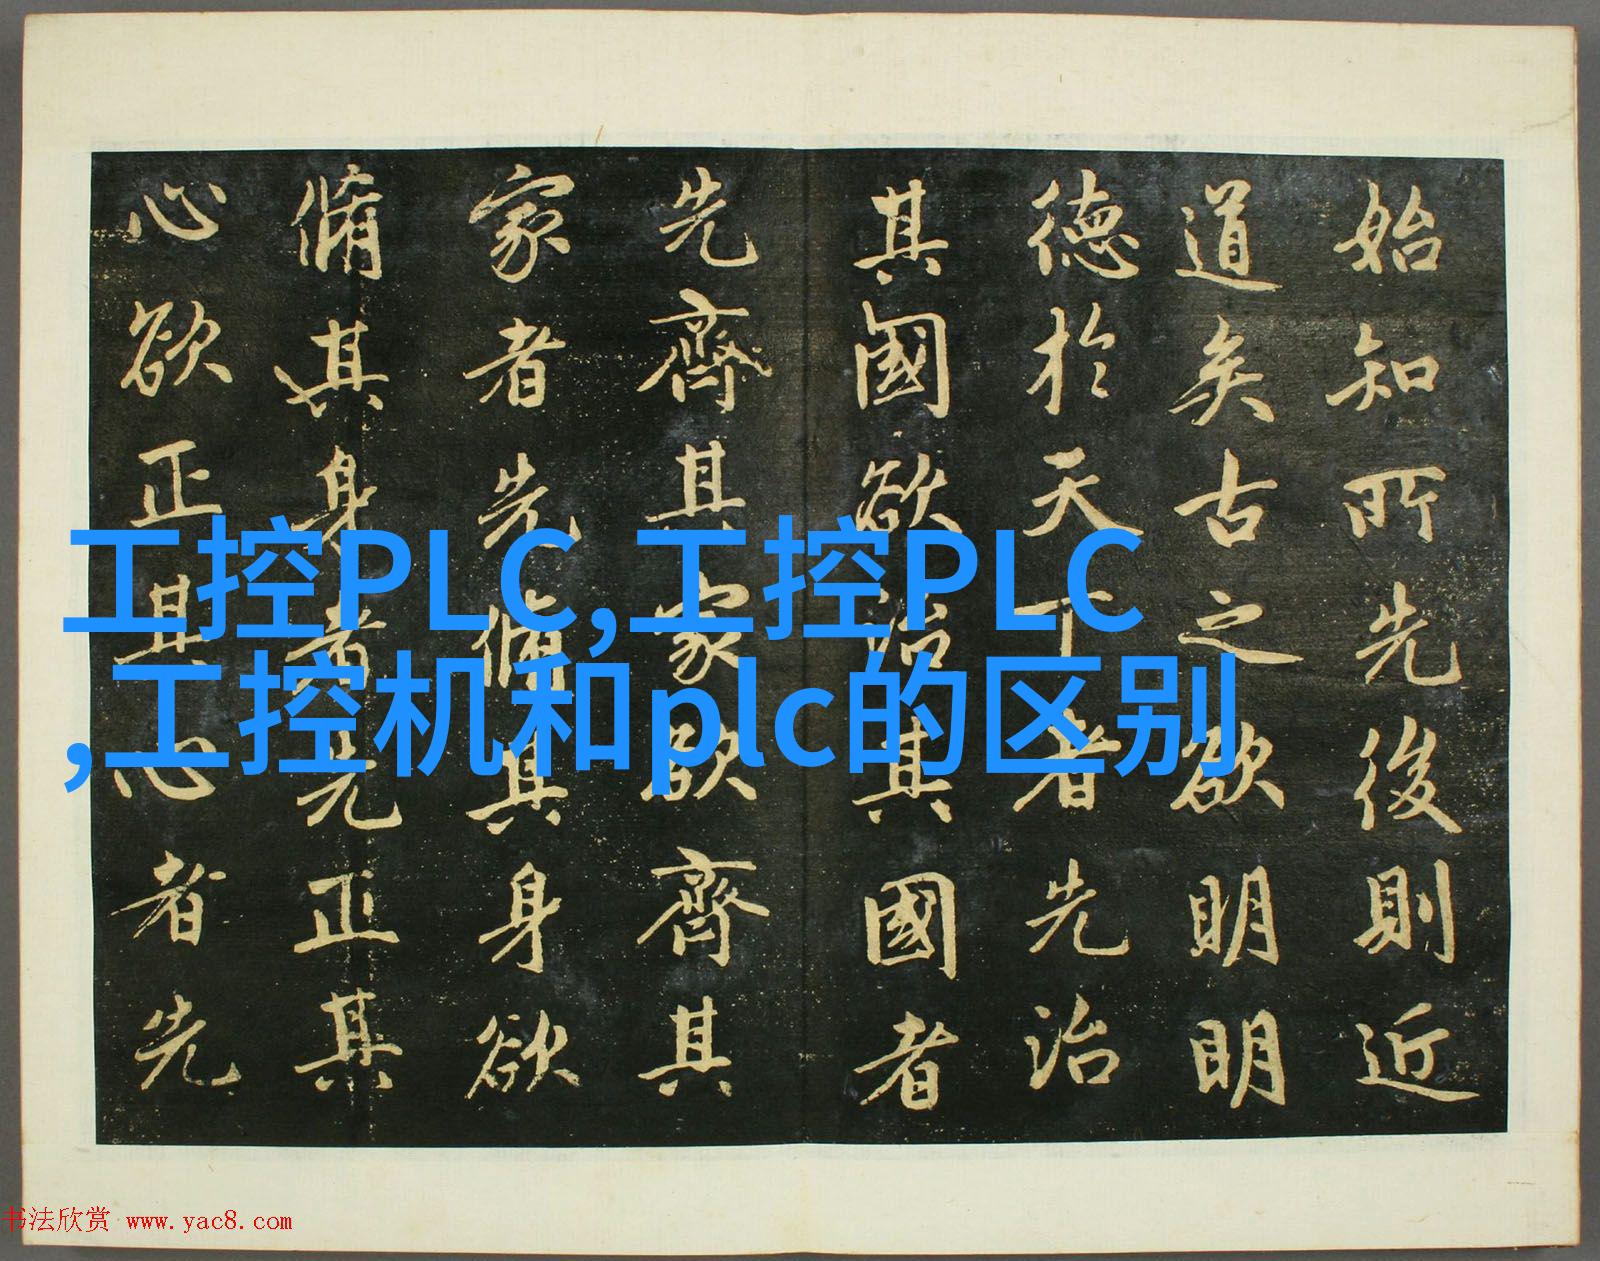 始知所先後則近
道矣古之欲明明
德於天下者先治
其國欲治其國者
先齊其家欲齊其
家者先脩其身欲
脩其身者先正其
心欲正其心者先
工控PLC,工控PLC
,工控机和plc的区别
书法欣赏 www.yac8.com